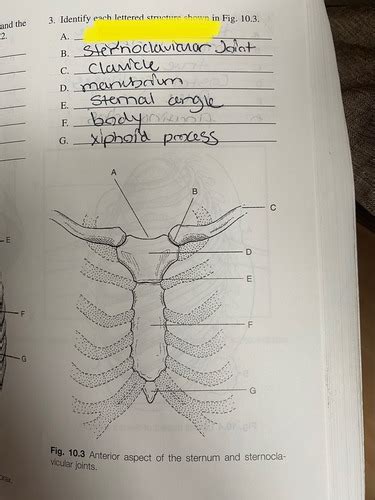 and the
2.
3. Identify each lettered structure shown in Fig. 10.3.
A.
B. Sternoclavicular Joint
C. Clavicle
D. manubrium
E. Sternal angle
F. body
G. Xiphoid process
A
B
C
D
E
F
G
E
F
G
Fig. 10.3 Anterior aspect of the sternum and sternocla-
vicular joints.